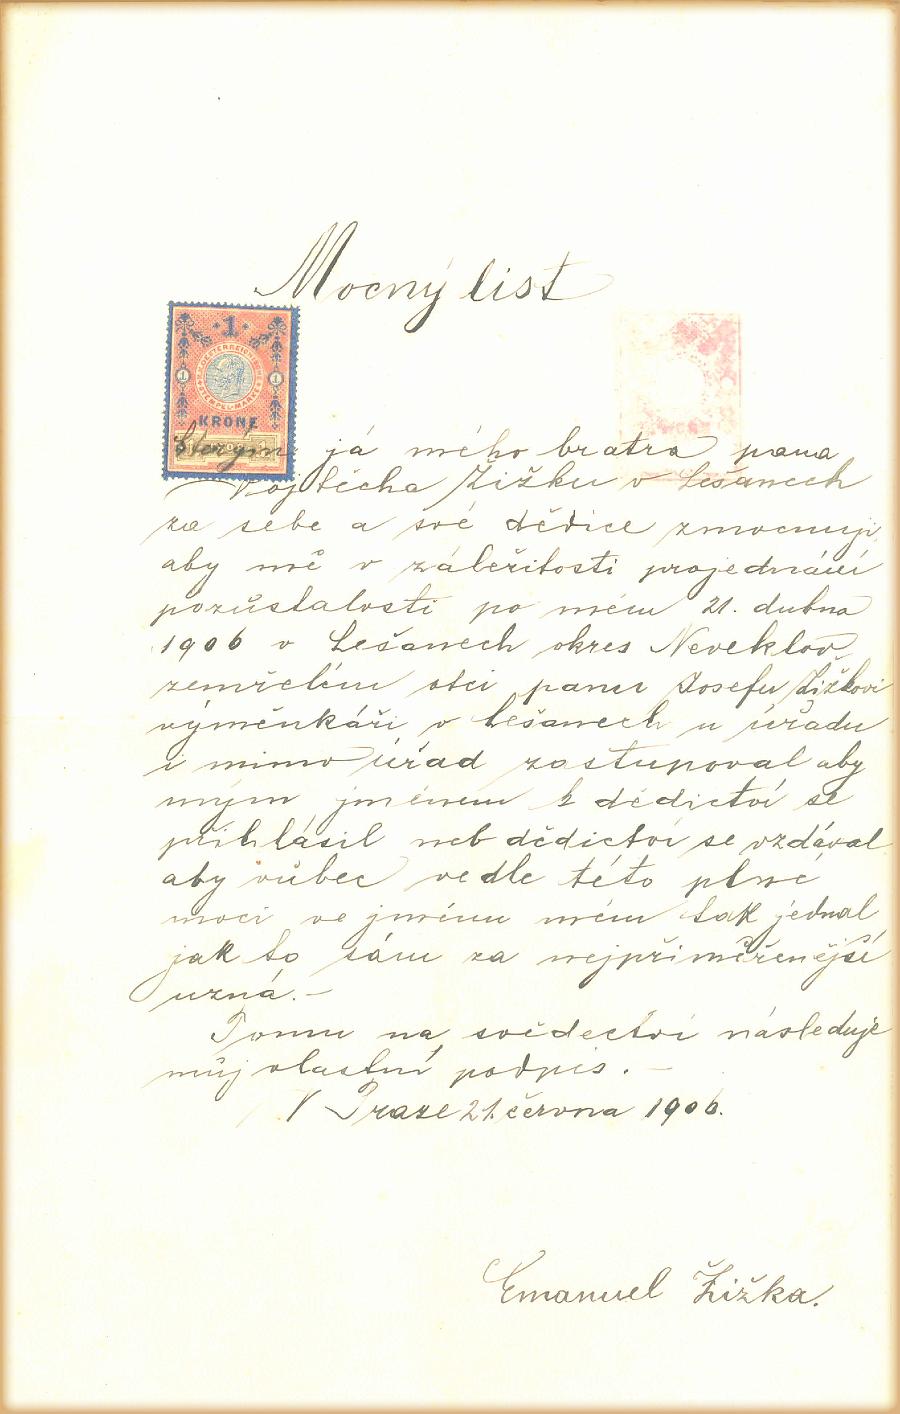 Mocný list
1
K.K. OESTERREICHISCHE STEMPEL-MARKE
1 1
KRONE
Kterým já mého bratra pana
Vojtěcha Žižku v Lešanech
za sebe a své dědice zmocnuji,
aby mě v záležitosti projednání
pozůstalosti po mém 21. dubna
1906 v Lešanech okres Neveklov
zemřelém otci panu Josefu Žižkovi
výměnkáři v Lešanech u úřadu
i mimo úřad zastupoval aby
mým jménem k dědictví se
přihlásil neb dědictví se vzdával
aby vůbec vedle této plné
moci ve jménu mém tak jednal
jak to sám za nejpřiměřenější
uzná.–
Tomu na svědectví následuje
můj vlastní podpis. –
V Praze 21. června 1906.
Emanuel Žižka.